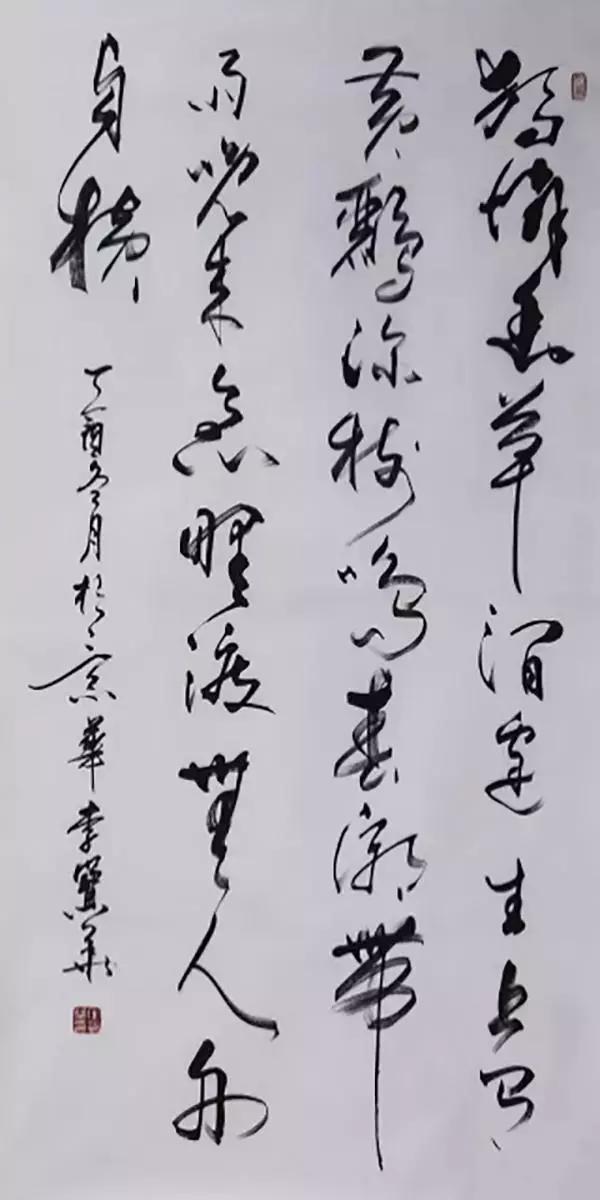 獨憐幽草澗邊生上有
黃鸝深樹鳴春潮帶
雨晚來急野渡無人舟
自橫
丁酉冬月於京華李